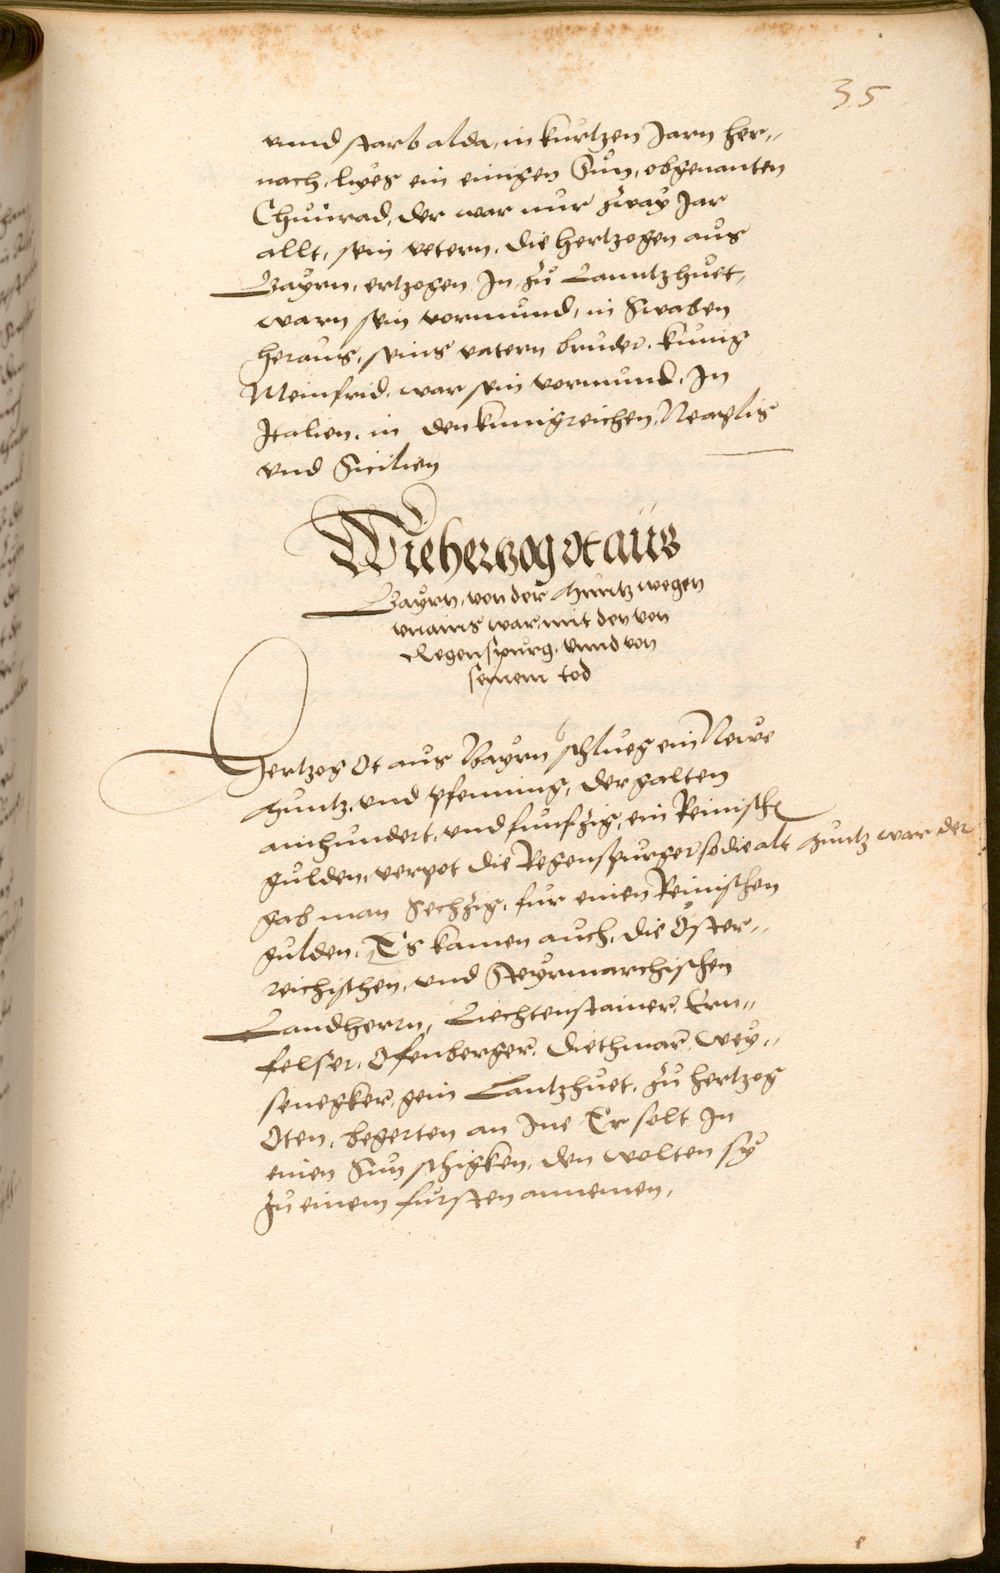 35
vnnd starb alda, in kurtzen Jarn her„
nach, lyes ein einigen Sun, obgenanten
Chunrad, der war nur zway Jar
allt, sein vetern, die hertzogen aus
Bayrn, ertzogen In, zu Lanntzhuet,
warn sein vormund, in Swaben
heraus, seins vatern bruder, kunig
Meinfrid, war sein vormund, In
Italien, in den kunigreichen, Neaplis
vnd Sicilien
Wie herzog ot aus
Bayrn, von der Muntz wegen
vnains war, mit den von
Regenspurg, vnnd von
seinem tod
Hertzog Ot aus Bayrn schlueg ein Newe
Muntz, vnd pfenning, der galten
ainhundert, vnd funfzig, ein Reinisch
gulden, verpot die Regenspurger so die alt Muntz war der
gab man Sechzig, fur einen Reinischen
gulden, Es kamen auch, die Öster„
reichischen, vnd Steyrmarchischen
Landherrn, Liechtenstainer, Ern„
felser, Ofenberger, Diethmar, Wey„
senegker, gein Lantzhuet, zu hertzog
Oten, begerten an Ine Er solt In
einen Sun schigken, den wolten sy
zu einem fursten annemen,